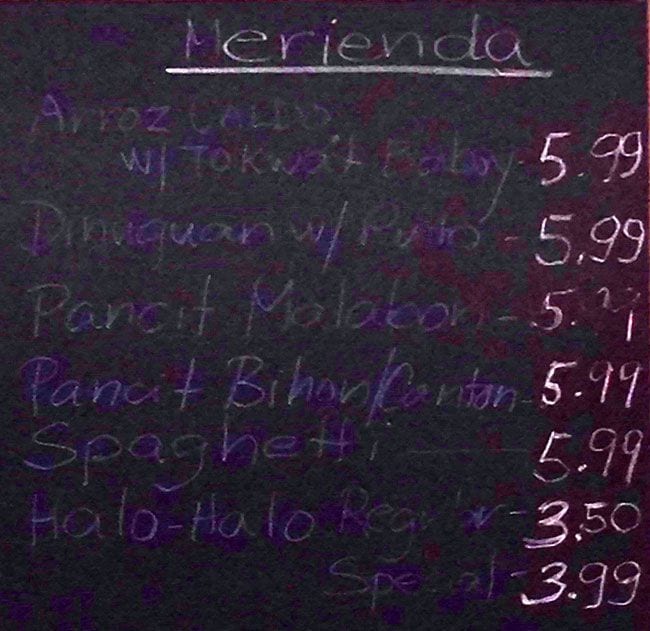 Merienda
Arroz CALDO
w/ Tokwa't Baboy - 5.99
Dinuguan w/ Puto - 5.99
Pancit Malabon - 5.99
Pancit Bihon/Canton - 5.99
Spaghetti - 5.99
Halo-Halo Regular - 3.50
Special - 3.99